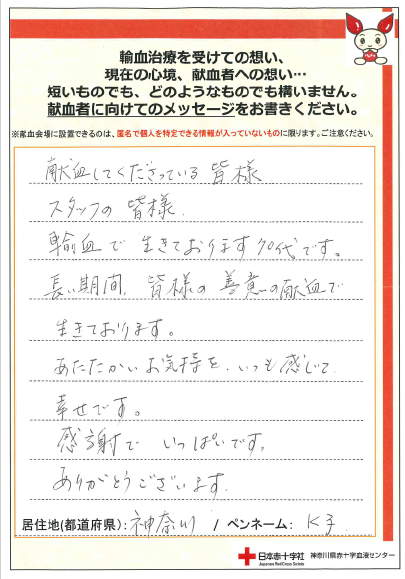 輸血治療を受けての想い、
現在の心境、献血者への想い…
短いものでも、どのようなものでも構いません。
献血者に向けてのメッセージをお書きください。
※献血会場に設置できるのは、匿名で個人を特定できる情報が入っていないものに限ります。ご注意ください。
献血してくださっている皆様
スタッフの皆様
輸血で生きております70代です。
長い期間、皆様の善意の献血で
生きております。
あたたかいお気持を、いつも感じて
幸せです。
感謝で いっぱいです。
ありがとうございます。
居住地(都道府県):神奈川 / ペンネーム: K子
日本赤十字社 神奈川県赤十字血液センター
Japanese Red Cross Society